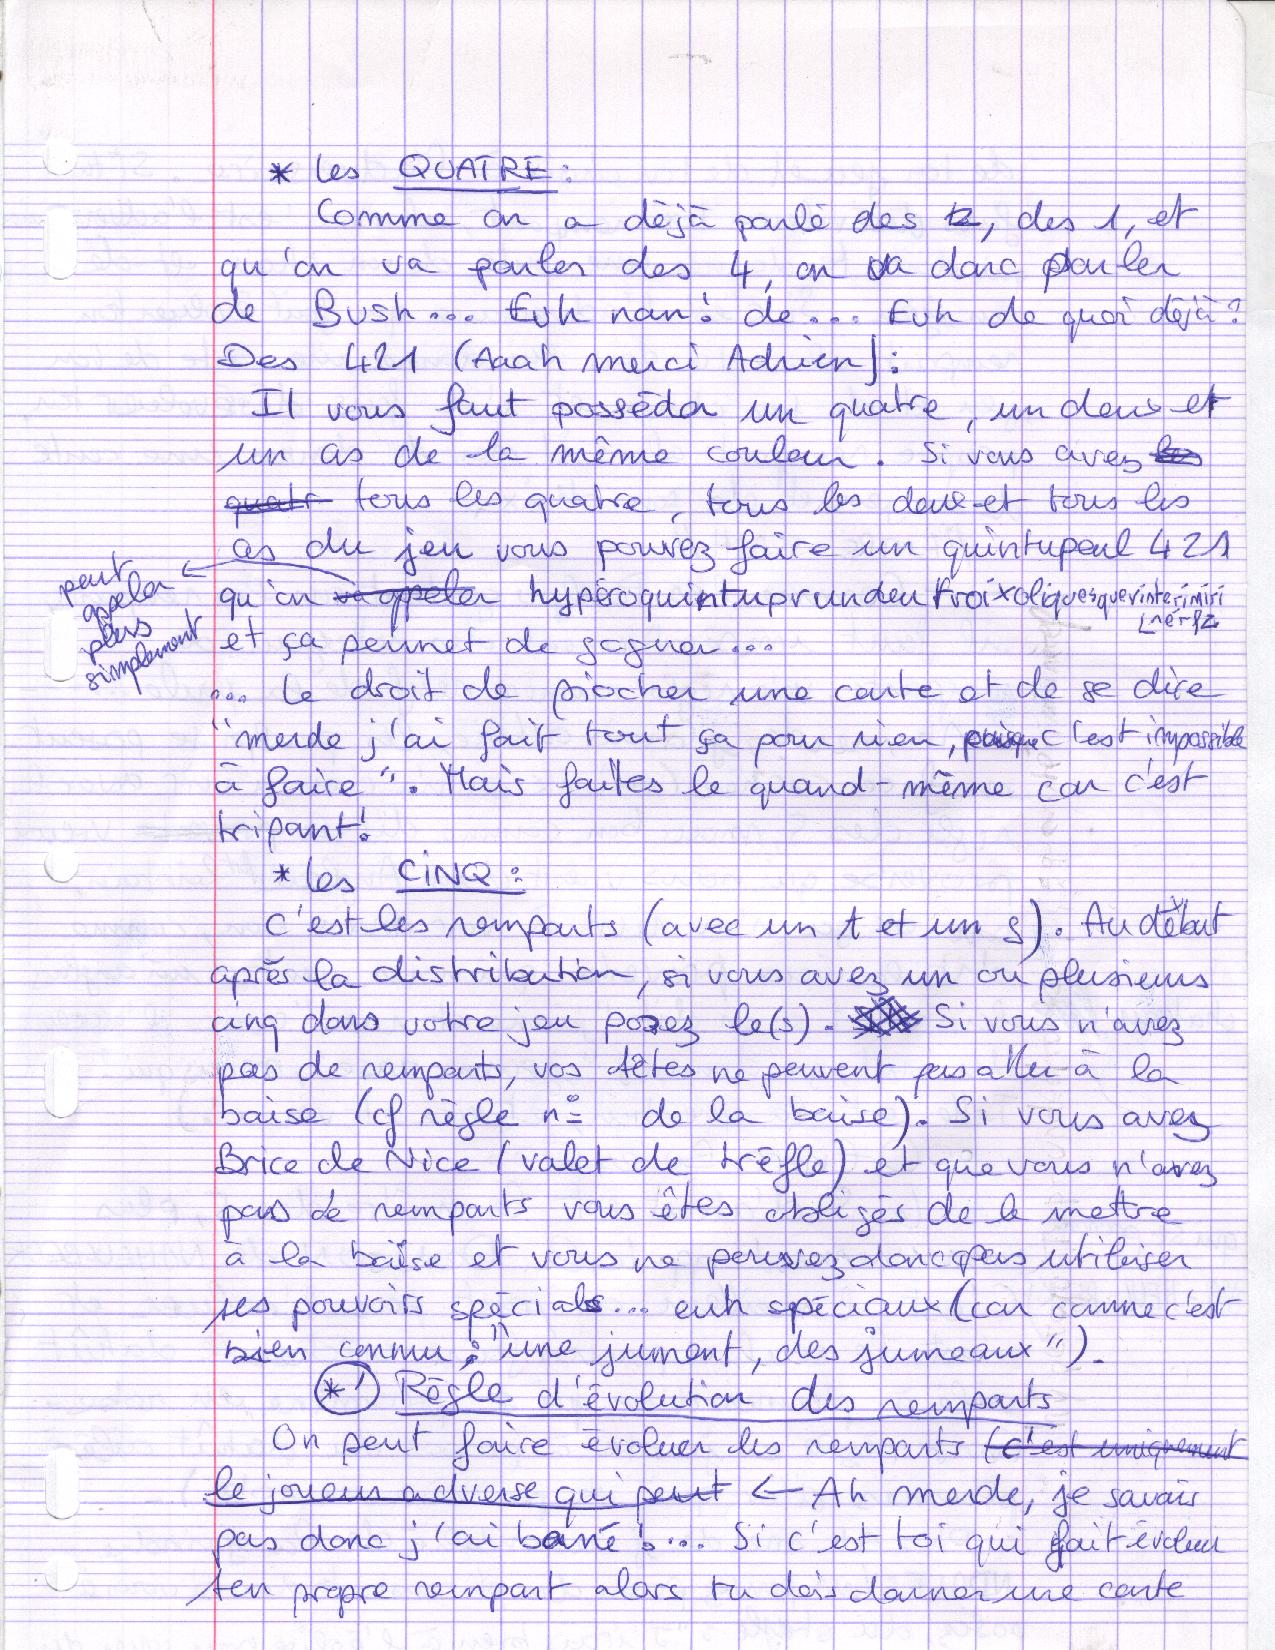 * les QUATRE :
Comme on a déjà parlé des 2, des 1, et
qu'on va parler des 4, on va donc parler
de Bush... Euh nan! de... Euh de quoi déjà?
Des 421 (Aaah merci Adrien) :
Il vous faut posséder un quatre, un deux et
un as de la même couleur. Si vous avez les
quatr tous les quatre, tous les deux et tous les
as du jeu vous pouvez faire un quintupeul 421
peut
appeler
plus
simplement
qu'on appeler hypéroquintuprundeutroixoliquesquerinterimiri
et ça permet de gagner...
... le droit de piocher une carte et de se dire
"merde j'ai fait tout ça pour rien, puisque c'est impossible
à faire". Mais faites le quand-même car c'est
tripant!
* les CINQ :
C'est les remparts (avec un t et un s). Au début
après la distribution, si vous avez un ou plusieurs
cinq dans votre jeu posez le(s). Si vous n'avez
pas de remparts, vos têtes ne peuvent pas aller à la
baise (cf règle n° de la baise). Si vous avez
Brice de Nice (valet de trèfle) et que vous n'avez
pas de remparts vous êtes obligés de le mettre
à la baise et vous ne pouvez donc pas utiliser
ses pouvoirs spécials... euh spéciaux (car comme c'est
bien connu : "une jument, des jumeaux").
*' Règle d'évolution des remparts
On peut faire évoluer les remparts (c'est uniquement
le joueur adverse qui peut ← Ah merde, je savais
pas donc j'ai barré!... Si c'est toi qui fait évoluer
ton propre rempart alors tu dois donner une carte